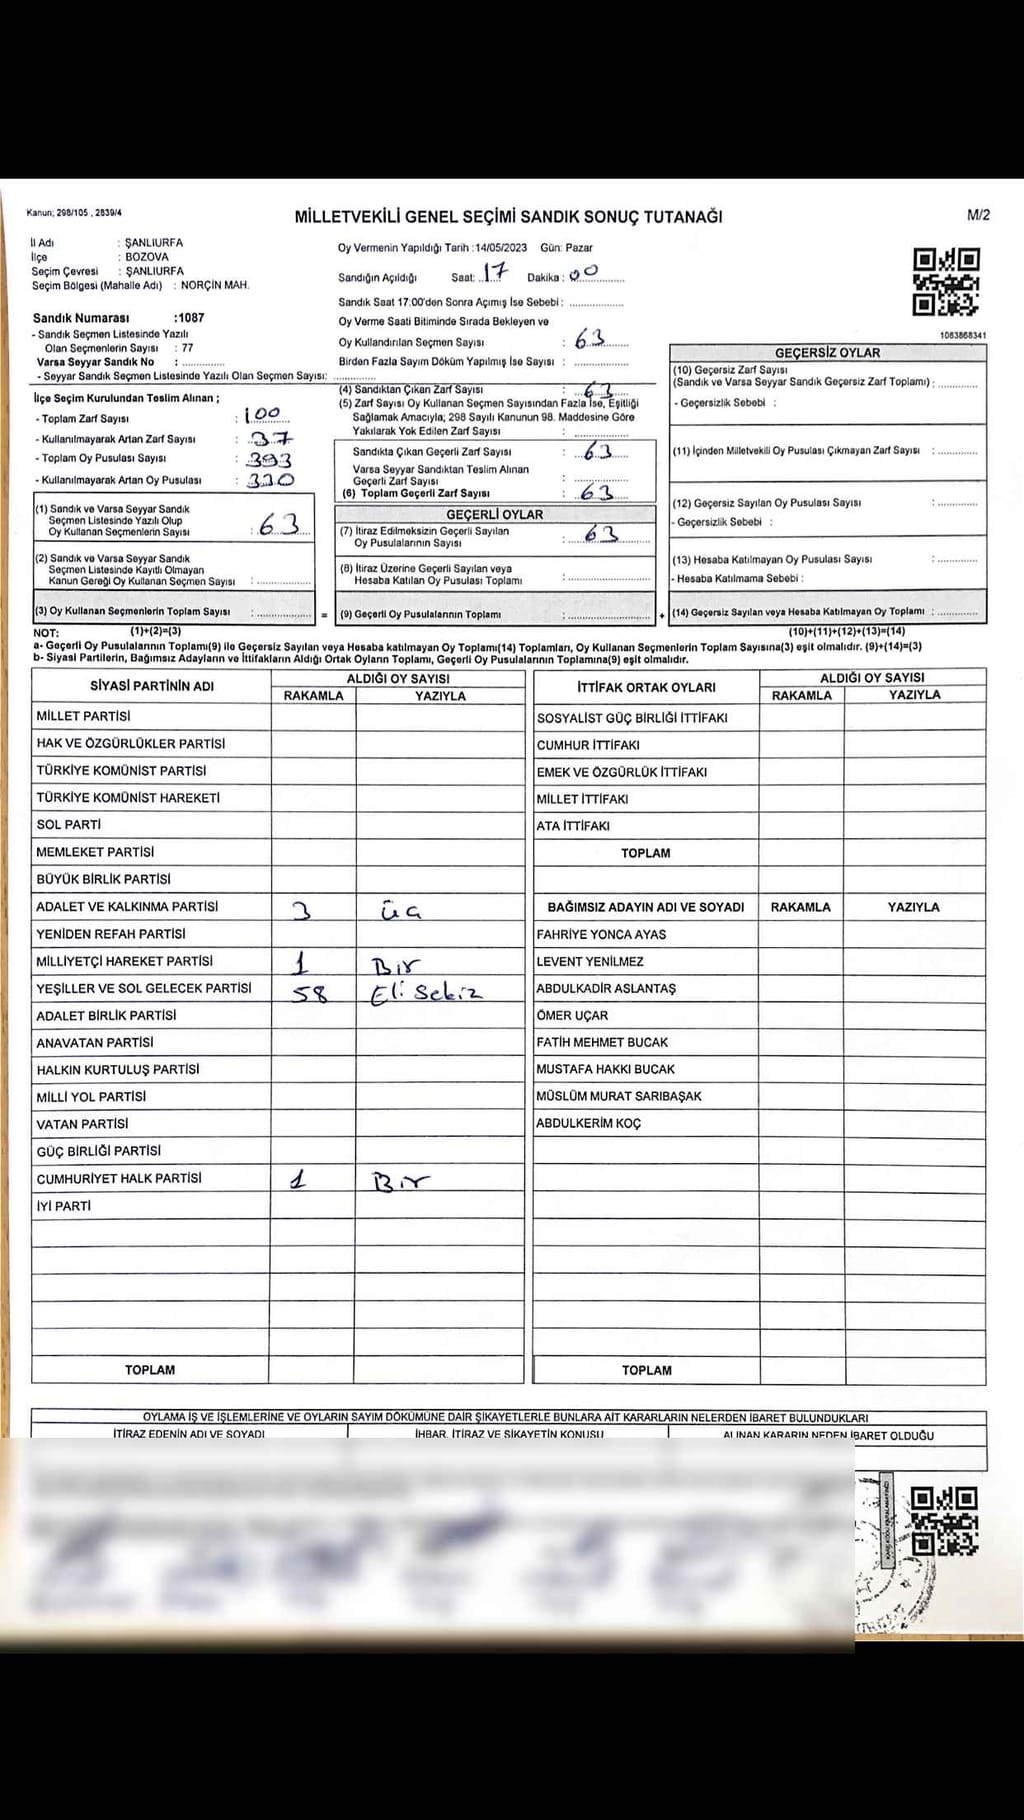 Kanun; 298/105 , 2839/4
MİLLETVEKİLİ GENEL SEÇİMİ SANDIK SONUÇ TUTANAĞI
M/2
İl Adı : ŞANLIURFA
İlçe : BOZOVA
Seçim Çevresi : ŞANLIURFA
Seçim Bölgesi (Mahalle Adı) : NORÇİN MAH.
Sandık Numarası :1087
- Sandık Seçmen Listesinde Yazılı
Olan Seçmenlerin Sayısı : 77
Varsa Seyyar Sandık No :
- Seyyar Sandık Seçmen Listesinde Yazılı Olan Seçmen Sayısı:
İlçe Seçim Kurulundan Teslim Alınan ;
- Toplam Zarf Sayısı : 100
- Kullanılmayarak Artan Zarf Sayısı : 37
- Toplam Oy Pusulası Sayısı : 393
- Kullanılmayarak Artan Oy Pusulası : 330
(1) Sandık ve Varsa Seyyar Sandık
Seçmen Listesinde Yazılı Olup
Oy Kullanan Seçmenlerin Sayısı : 63
(2) Sandık ve Varsa Seyyar Sandık
Seçmen Listesinde Kayıtlı Olmayan
Kanun Gereği Oy Kullanan Seçmen Sayısı :
(3) Oy Kullanan Seçmenlerin Toplam Sayısı :
Oy Vermenin Yapıldığı Tarih :14/05/2023 Gün: Pazar
Sandığın Açıldığı Saat: 17 Dakika : 00
Sandık Saat 17.00'den Sonra Açımış İse Sebebi :
Oy Verme Saati Bitiminde Sırada Bekleyen ve
Oy Kullandırılan Seçmen Sayısı : 63
Birden Fazla Sayım Döküm Yapılmış İse Sayısı :
(4) Sandıktan Çıkan Zarf Sayısı : 63
(5) Zarf Sayısı Oy Kullanan Seçmen Sayısından Fazla İse, Eşitliği
Sağlamak Amacıyla; 298 Sayılı Kanunun 98. Maddesine Göre
Yakılarak Yok Edilen Zarf Sayısı :
Sandıkta Çıkan Geçerli Zarf Sayısı : 63
Varsa Seyyar Sandıktan Teslim Alınan
Geçerli Zarf Sayısı :
(6) Toplam Geçerli Zarf Sayısı : 63
GEÇERLİ OYLAR
(7) İtiraz Edilmeksizin Geçerli Sayılan
Oy Pusulalarının Sayısı : 63
(8) İtiraz Üzerine Geçerli Sayılan veya
Hesaba Katılan Oy Pusulası Toplamı :
= (9) Geçerli Oy Pusulalarının Toplamı :
1083868341
GEÇERSİZ OYLAR
(10) Geçersiz Zarf Sayısı
(Sandık ve Varsa Seyyar Sandık Geçersiz Zarf Toplamı) :
- Geçersizlik Sebebi :
(11) İçinden Milletvekili Oy Pusulası Çıkmayan Zarf Sayısı :
(12) Geçersiz Sayılan Oy Pusulası Sayısı :
- Geçersizlik Sebebi :
(13) Hesaba Katılmayan Oy Pusulası Sayısı :
- Hesaba Katılmama Sebebi :
+ (14) Geçersiz Sayılan veya Hesaba Katılmayan Oy Toplamı :
NOT: (1)+(2)=(3) (10)+(11)+(12)+(13)=(14)
a- Geçerli Oy Pusulalarının Toplamı(9) ile Geçersiz Sayılan veya Hesaba katılmayan Oy Toplamı(14) Toplamları, Oy Kullanan Seçmenlerin Toplam Sayısına(3) eşit olmalıdır. (9)+(14)=(3)
b- Siyasi Partilerin, Bağımsız Adayların ve İttifakların Aldığı Ortak Oyların Toplamı, Geçerli Oy Pusulalarının Toplamına(9) eşit olmalıdır.
SİYASİ PARTİNİN ADI ALDIĞI OY SAYISI
RAKAMLA YAZIYLA
MİLLET PARTİSİ
HAK VE ÖZGÜRLÜKLER PARTİSİ
TÜRKİYE KOMÜNİST PARTİSİ
TÜRKİYE KOMÜNİST HAREKETİ
SOL PARTİ
MEMLEKET PARTİSİ
BÜYÜK BİRLİK PARTİSİ
ADALET VE KALKINMA PARTİSİ 3 üç
YENİDEN REFAH PARTİSİ
MİLLİYETÇİ HAREKET PARTİSİ 1 Bir
YEŞİLLER VE SOL GELECEK PARTİSİ 58 Eli Sekiz
ADALET BİRLİK PARTİSİ
ANAVATAN PARTİSİ
HALKIN KURTULUŞ PARTİSİ
MİLLİ YOL PARTİSİ
VATAN PARTİSİ
GÜÇ BİRLİĞİ PARTİSİ
CUMHURİYET HALK PARTİSİ 1 Bir
İYİ PARTİ
TOPLAM
İTTİFAK ORTAK OYLARI ALDIĞI OY SAYISI
RAKAMLA YAZIYLA
SOSYALİST GÜÇ BİRLİĞİ İTTİFAKI
CUMHUR İTTİFAKI
EMEK VE ÖZGÜRLÜK İTTİFAKI
MİLLET İTTİFAKI
ATA İTTİFAKI
TOPLAM
BAĞIMSIZ ADAYIN ADI VE SOYADI RAKAMLA YAZIYLA
FAHRİYE YONCA AYAS
LEVENT YENİLMEZ
ABDULKADİR ASLANTAŞ
ÖMER UÇAR
FATİH MEHMET BUCAK
MUSTAFA HAKKI BUCAK
MÜSLÜM MURAT SARIBAŞAK
ABDULKERİM KOÇ
TOPLAM
OYLAMA İŞ VE İŞLEMLERİNE VE OYLARIN SAYIM DÖKÜMÜNE DAİR ŞİKAYETLERLE BUNLARA AİT KARARLARIN NELERDEN İBARET BULUNDUKLARI
İTİRAZ EDENİN ADI VE SOYADI İHBAR, İTİRAZ VE ŞİKAYETİN KONUSU ALINAN KARARIN NEDEN İBARET OLDUĞU